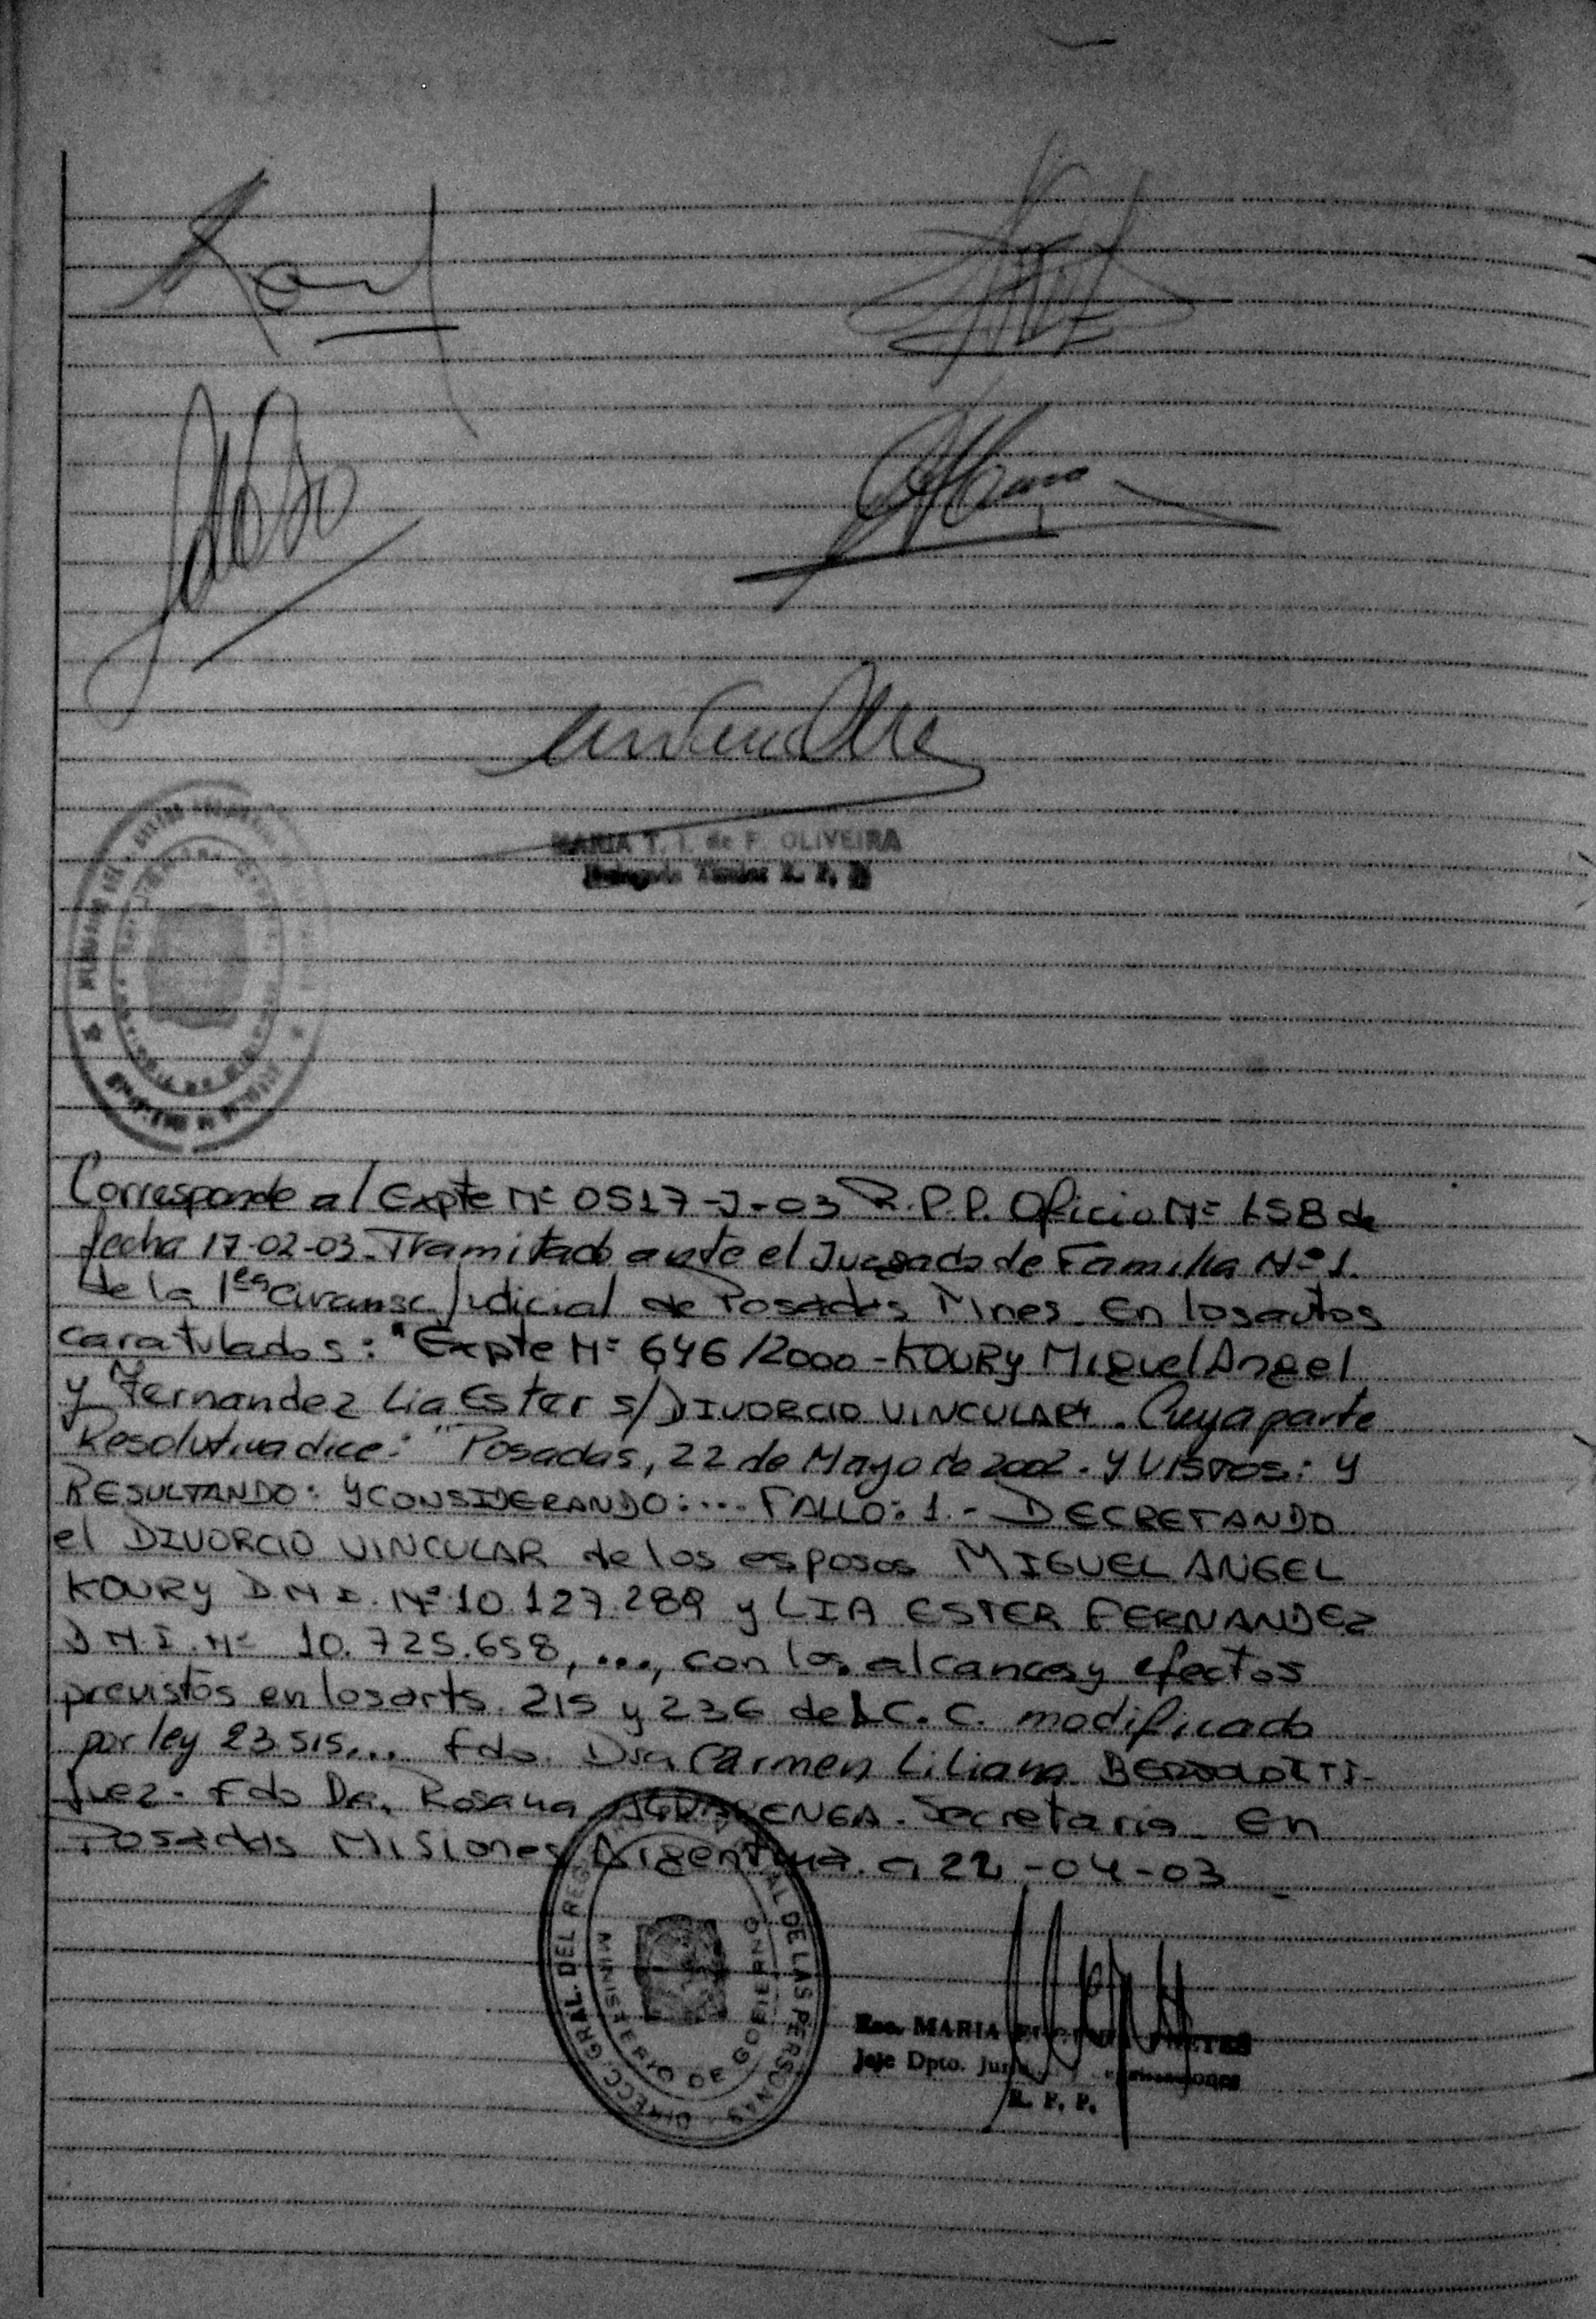 MARIA T. I. de F. OLIVEIRA
R. P. P.
Corresponde al Expte Nº 0517-J-03 R.P.P. Oficio Nº 158 de
fecha 17-02-03. Tramitado ante el Juzgado de Familia Nº 1.
de la 1era Circunsc Judicial de Posadas Mnes. En los autos
caratulados: "Expte Nº 646/2000 - KOURY Miguel Angel
y Fernandez Lia Ester s/DIVORCIO VINCULAR. Cuya parte
Resolutiva dice: "Posadas, 22 de Mayo de 2002. Y VISTOS: Y
RESULTANDO: Y CONSIDERANDO:... FALLO: 1.- DECRETANDO
el DIVORCIO VINCULAR de los esposos MIGUEL ANGEL
KOURY D.N.I. Nº 10.127.289 y LIA ESTER FERNANDEZ
D.N.I. Nº 10.725.658, ..., con los alcances y efectos
previstos en los arts. 215 y 236 del C.C. modificado
por ley 23.515... Fdo. Dra Carmen Liliana
Juez. Fdo Dra. Rosana Secretaria. En
Posadas Misiones Argentina a 22-04-03
DIRECC. GRAL. DEL REG. DE LAS PERSONAS
MINISTERIO DE GOBIERNO
Esc. MARIA
Jefe Dpto.
R. P. P.